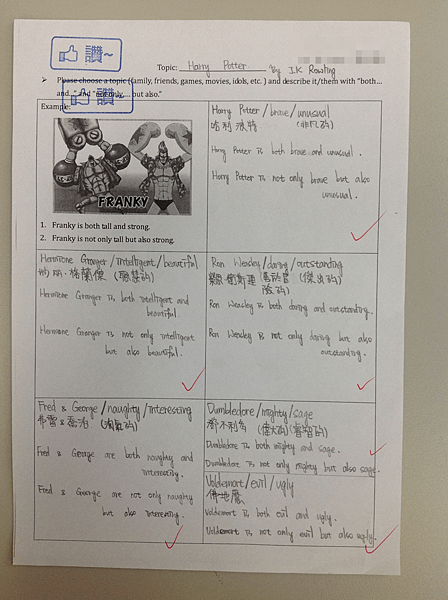 讚~
讚~
Topic: Harry Potter by J.K Rowling
➢ Please choose a topic (family, friends, games, movies, idols, etc. ) and describe it/them with "both…
and…" and "not only… but also."
Example:
FRANKY
1. Franky is both tall and strong.
2. Franky is not only tall but also strong.
Harry Potter / brave / unusual
哈利波特 (非凡的)
Harry Potter is both brave and unusual.
Harry Potter is not only brave but also
unusual.
Hermione Granger / Intelligent / beautiful
妙麗·格蘭傑 (聰慧的)
Hermione Granger is both intelligent and
beautiful.
Hermione Granger is not only intelligent
but also beautiful.
Ron Weasley / daring / outstanding
榮恩衛斯理 勇於冒 (傑出的)
險的)
Ron Weasley is both daring and outstanding.
Ron Weasley is not only daring but also
outstanding.
Fred & George / naughty / Interesting
弗雷&喬治 (淘氣的)
Fred & George are both naughty and
interesting.
Fred & George are not only naughty
but also interesting.
Dumbledore / mighty / sage
鄧不利多 (偉大的) (睿智的)
Dumbledore is both mighty and sage.
Dumbledore is not only mighty but also sage.
Voldemort / evil / ugly
佛地魔
Voldemort is both evil and ugly.
Voldemort is not only evil but also ugly.